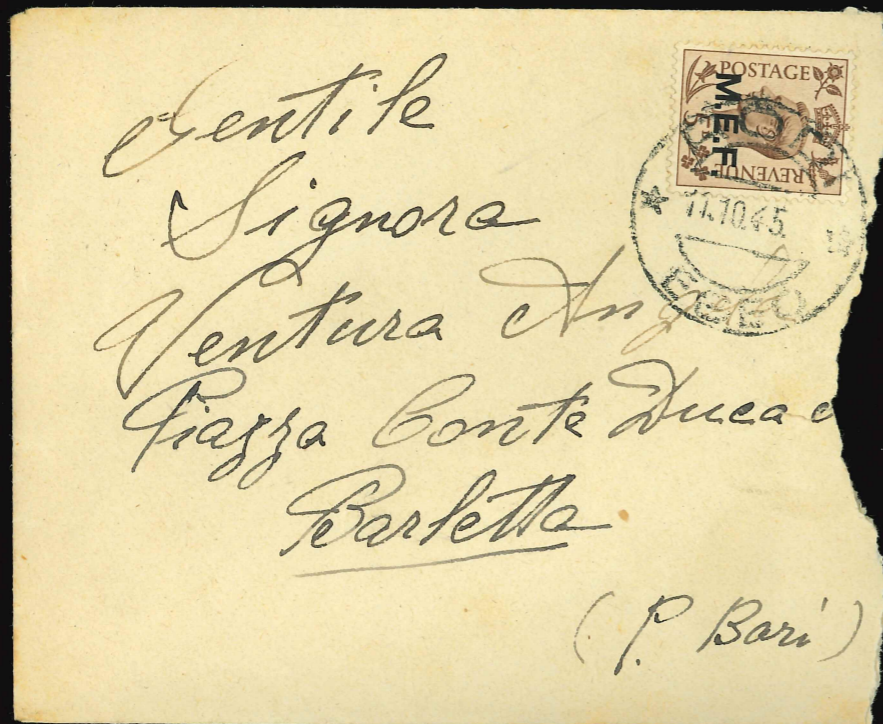 POSTAGE
REVENUE
M.E.F.
11.10.45.
EGEO
Gentile
Signora
Ventura Angela
Piazza Conte Duca
Barletta
(P. Bari)